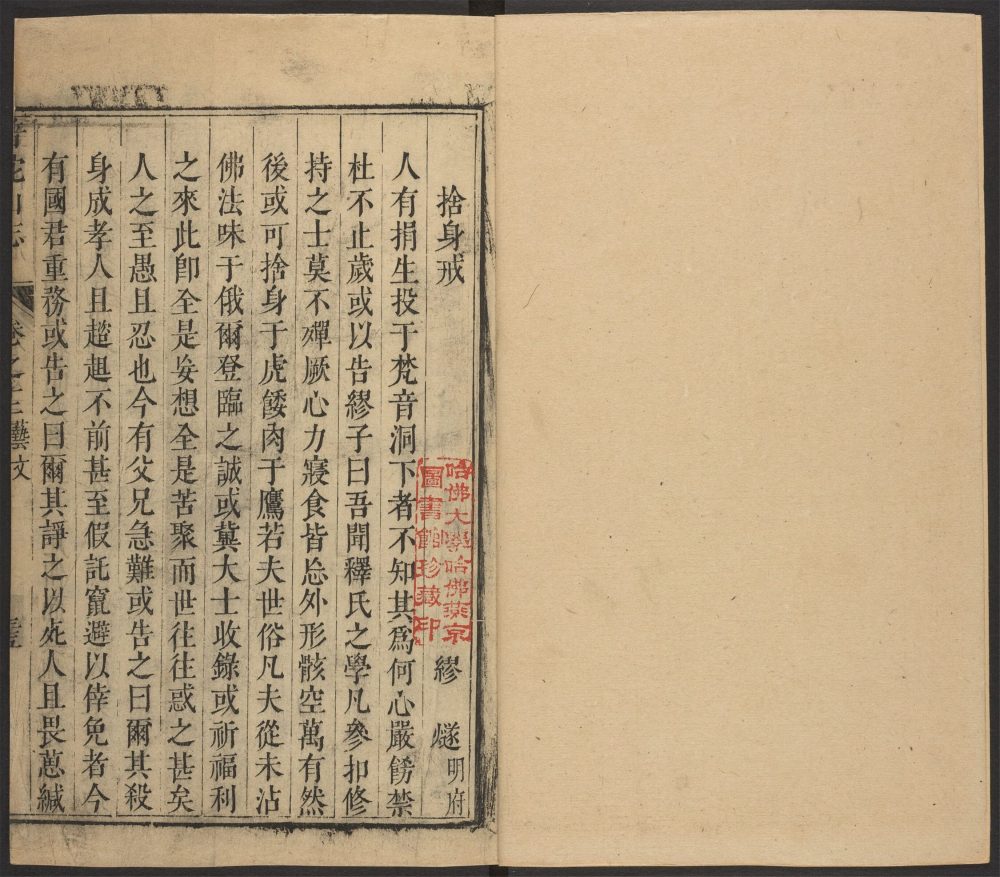 捨身戒
繆燧明府
人有捐生投于梵音洞下者不知其爲何心嚴飭禁
杜不止歲或以告繆子曰吾聞釋氏之學凡參扣修
持之士莫不殫厥心力寢食皆忘外形骸空萬有然
後或可捨身于虎餧肉于鷹若夫世俗凡夫從未沾
佛法味于俄爾登臨之誠或冀大士收錄或祈福利
之來此卽全是妄想全是苦聚而世往往惑之甚矣
人之至愚且忍也今有父兄急難或告之曰爾其殺
身成孝人且趑趄不前甚至假託竄避以倖免者今
有國君重務或告之曰爾其諍之以死人且畏葸緘
普陀山志
卷之
藝文
哈佛大學哈佛燕京
圖書館珍藏印